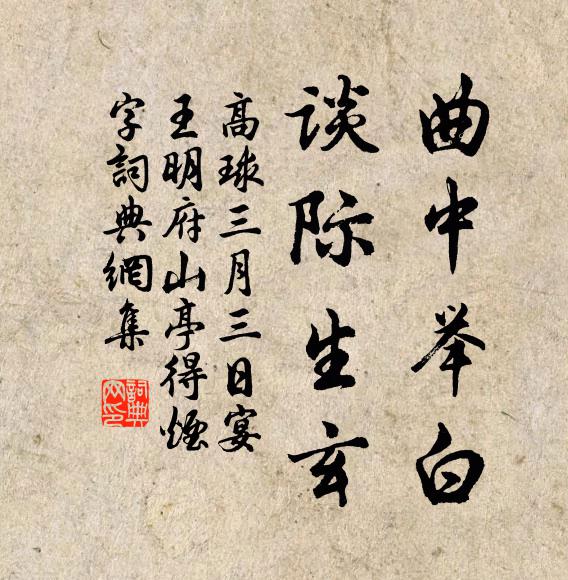 曲中举白
谈际生玄
高球三月三日宴
王明府山亭得烟
字詞典網集
詞典
网印